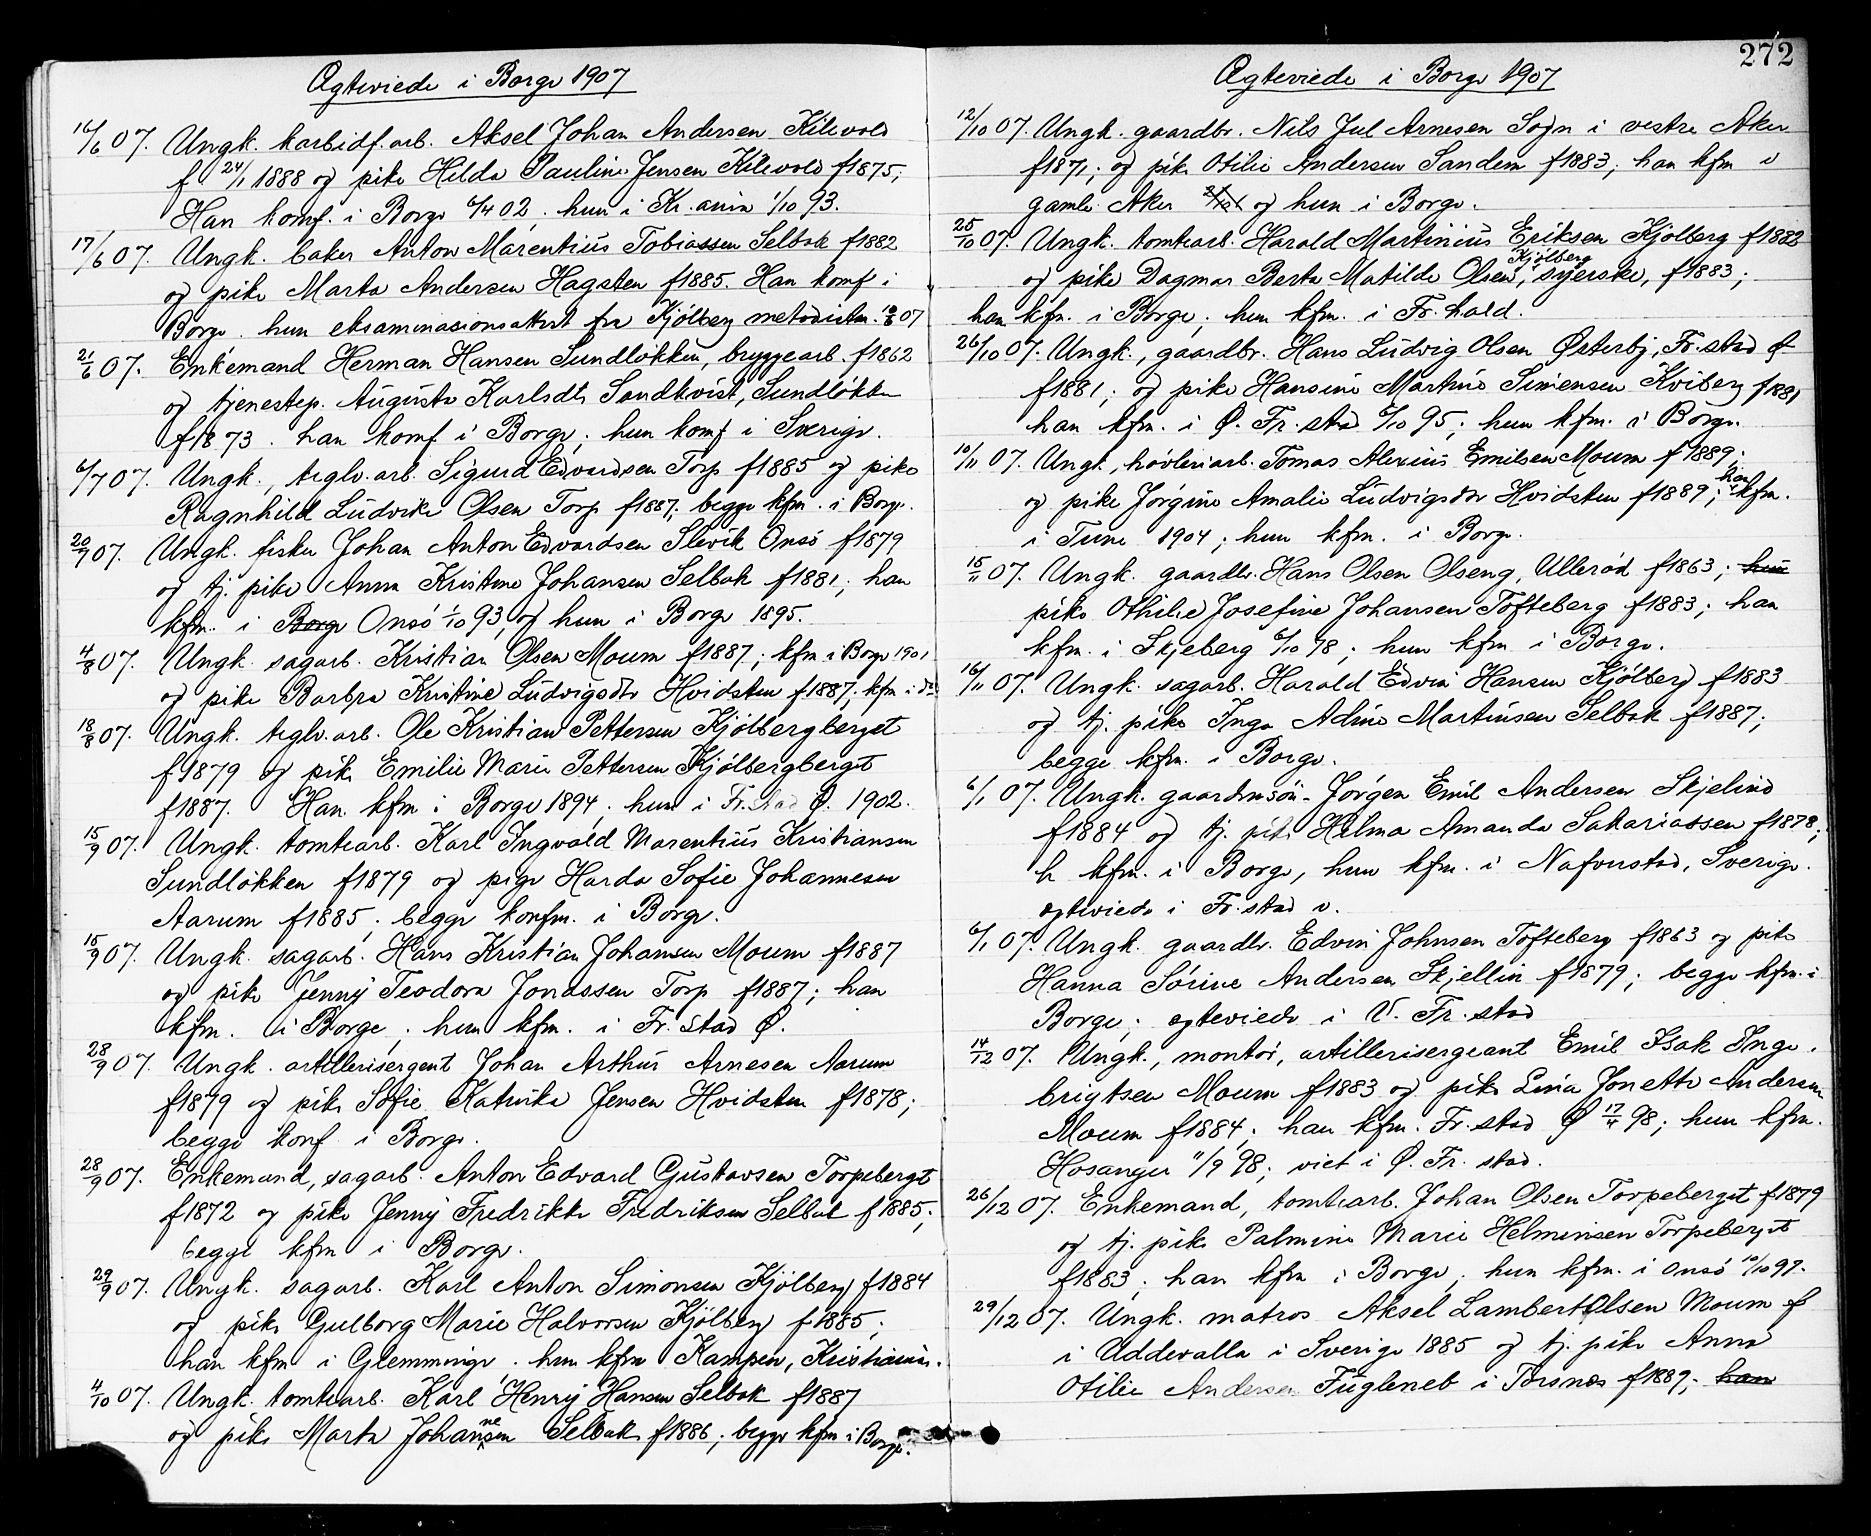 Ægteviede i Borge 1907
16/6 07. Ungk. karbidf. arb. Aksel Johan Andersen Kilevold
f 24/1 1888 og pike Hilda Pauline Jensen Kilevold f1875;
Han komf. i Borge 6/4 02. hun i Kr.ania 1/10 93.
17/6 07. Ungk. baker Anton Marentius Tobiassen Selbak f1882
og pike Marta Andersen Hagsten f1885. Han komf i
Borge. hun eksaminasionsattest fra Kjölberg metodistm. 07
21/6 07. Enkemand Herman Hansen Sundlökken, bryggearb. f1862
og tjenestep. Augusta Karlsdtr Sandkvist, Sundlökken
f1873. han komf i Borge; hun komf i Sverige.
6/7 07. Ungk., teglv. arb. Sigurd Edvardsen Torp f1885 og pike
Ragnhild Ludvika Olsen Torp f1887; begge kfm. i Borge.
20/7 07. Ungk. fisker Johan Anton Edvardsen Slevik Onsö f1879
og tj. pike Anna Kristine Johansen Selbak f1881; han
kfm. i Borge Onsö 1/10 93, og hun i Borge 1895.
4/8 07. Ungk. sagarb. Kristian Olsen Moum f1887; kfm i Borge 1901
og pike Barbra Kristine Ludvigsdtr Hvidsten f1887, kfm i do
18/8 07. Ungk. teglv. arb. Ole Kristian Pettersen Kjölbergberget
f1879 og pike Emilie Marie Pettersen Kjölbergberget
f1887. Han kfm i Borge 1894; hun i Fr.stad Ø. 1902.
15/9 07. Ungk. tomtearb. Karl Ingvald Marentius Kristiansen
Sundlökken f1879 og pige Harda Sofie Johannesen
Aarum f1885; begge konfm. i Borge.
15/9 07. Ungk. sagarb. Hans Kristian Johansen Moum f1887
og pike Jenny Teodora Jonassen Torp f1887; han
kfm. i Borge; hun kfm. i Fr. stad Ø.
28/9 07. Ungk. artillerisergent Johan Arthur Arnesen Aarum
f1879 og pike Sofie Katrika Jensen Hvidsten f1878;
begge konf i Borge.
28/9 07. Enkemand, sagarb. Anton Edvard Gustavsen Torpeberget
f1872 og pike Jenny Fredrikke Fredriksen Selbak f1885;
begge kfm i Borge.
29/9 07. Ungk. sagarb. Karl Anton Simonsen Kjölberg f1884
og pike Gulborg Marie Halvorsen Kjölberg f1885;
han kfm i Glemminge. hun kfm Kampen, Kristiania.
4/10 07. Ungk. tomtearb. Karl Henry Hansen Selbak f1887
og pike Marta Johannesen Selbak f1886; begge kfm i Borge.
272
Ægteviede i Borge 1907
12/10 07. Ungk. gaardbr. Nils Jul Arnesen Sogn i vestre Aker
f1871; og pike Otilie Andersen Sandem f1883; han kfm i
gamle Aker og hun i Borge.
25/10 07. Ungk. tomtearb. Harald Martinius Eriksen Kjölberg f1882
og pike Dagmar Berta Matilde Olsen, Kjölberg, syerske, f1883;
han kfm. i Borge; hun kfm. i Fr. hald.
26/10 07. Ungk., gaardbr. Hans Ludvig Olsen Østerbj, Fr.stad Ø
f1881; og pike Hansine Martine Simensen Kviberg f1881
han kfm. i Ø. Fr.stad 6/10 95; hun kfm. i Borge.
10/11 07. Ungk., hövleriarb. Tomas Alexius Emilsen Moum f1889;
og pike Jörgine Amalie Ludvigsdtr Hvidsten f1889; han kfm.
i Tune 1904; hun kfm. i Borge.
15/11 07. Ungk. gaardbr. Hans Olsen Olseng, Ulleröd f1863; hun
pike Othilie Josefine Johansen Tofteberg f1883; han
kfm. i Skjeberg 6/10 78; hun kfm i Borge.
16/11 07. Ungk. sagarb. Harald Edvin Hansen Kjölberg f1883
og tj. pike Inga Adine Martinsen Selbak f1887;
begge kfm. i Borge.
6/1 07. Ungk. gaardmsön. Jörgen Emil Andersen Skjelind
f1884 og tj. pike Hilma Amanda Sakariassen f1878;
h kfm. i Borge, hun kfm. i Nafverstad, Sverige.
egteviede i Fr.stad v.
6/1 07. Ungk. gaardbr. Edvin Johnsen Tofteberg f1863 og pike
Hanna Sörine Andersen Skjellin f1879; begge kfm. i
Borge; egteviede i V. Fr. stad
14/12 07. Ungk., montör, artillerisergeant Emil Isak Inge.
brigtsen Moum f1883 og pike Lina Jonette Andersen
Moum f1884; han kfm. Fr.stad Ø 17/4 98; hun kfm.
Hosanger 11/9 98; viet i Ø. Fr. stad.
26/12 07. Enkemand, tomtearb. Johan Olsen Torpeberget f1879
og tj. pike Palmine Marie Helminsen Torpeberget
f1883; han kfm i Borge; hun kfm. i Onsö 10/10 97.
29/12 07. Ungk. matros Aksel Lambert Olsen Moum f
i Uddevalla i Sverige 1885 og tj. pike Anna
Otilie Andersen Fugleneb i Torsnes f1889; han